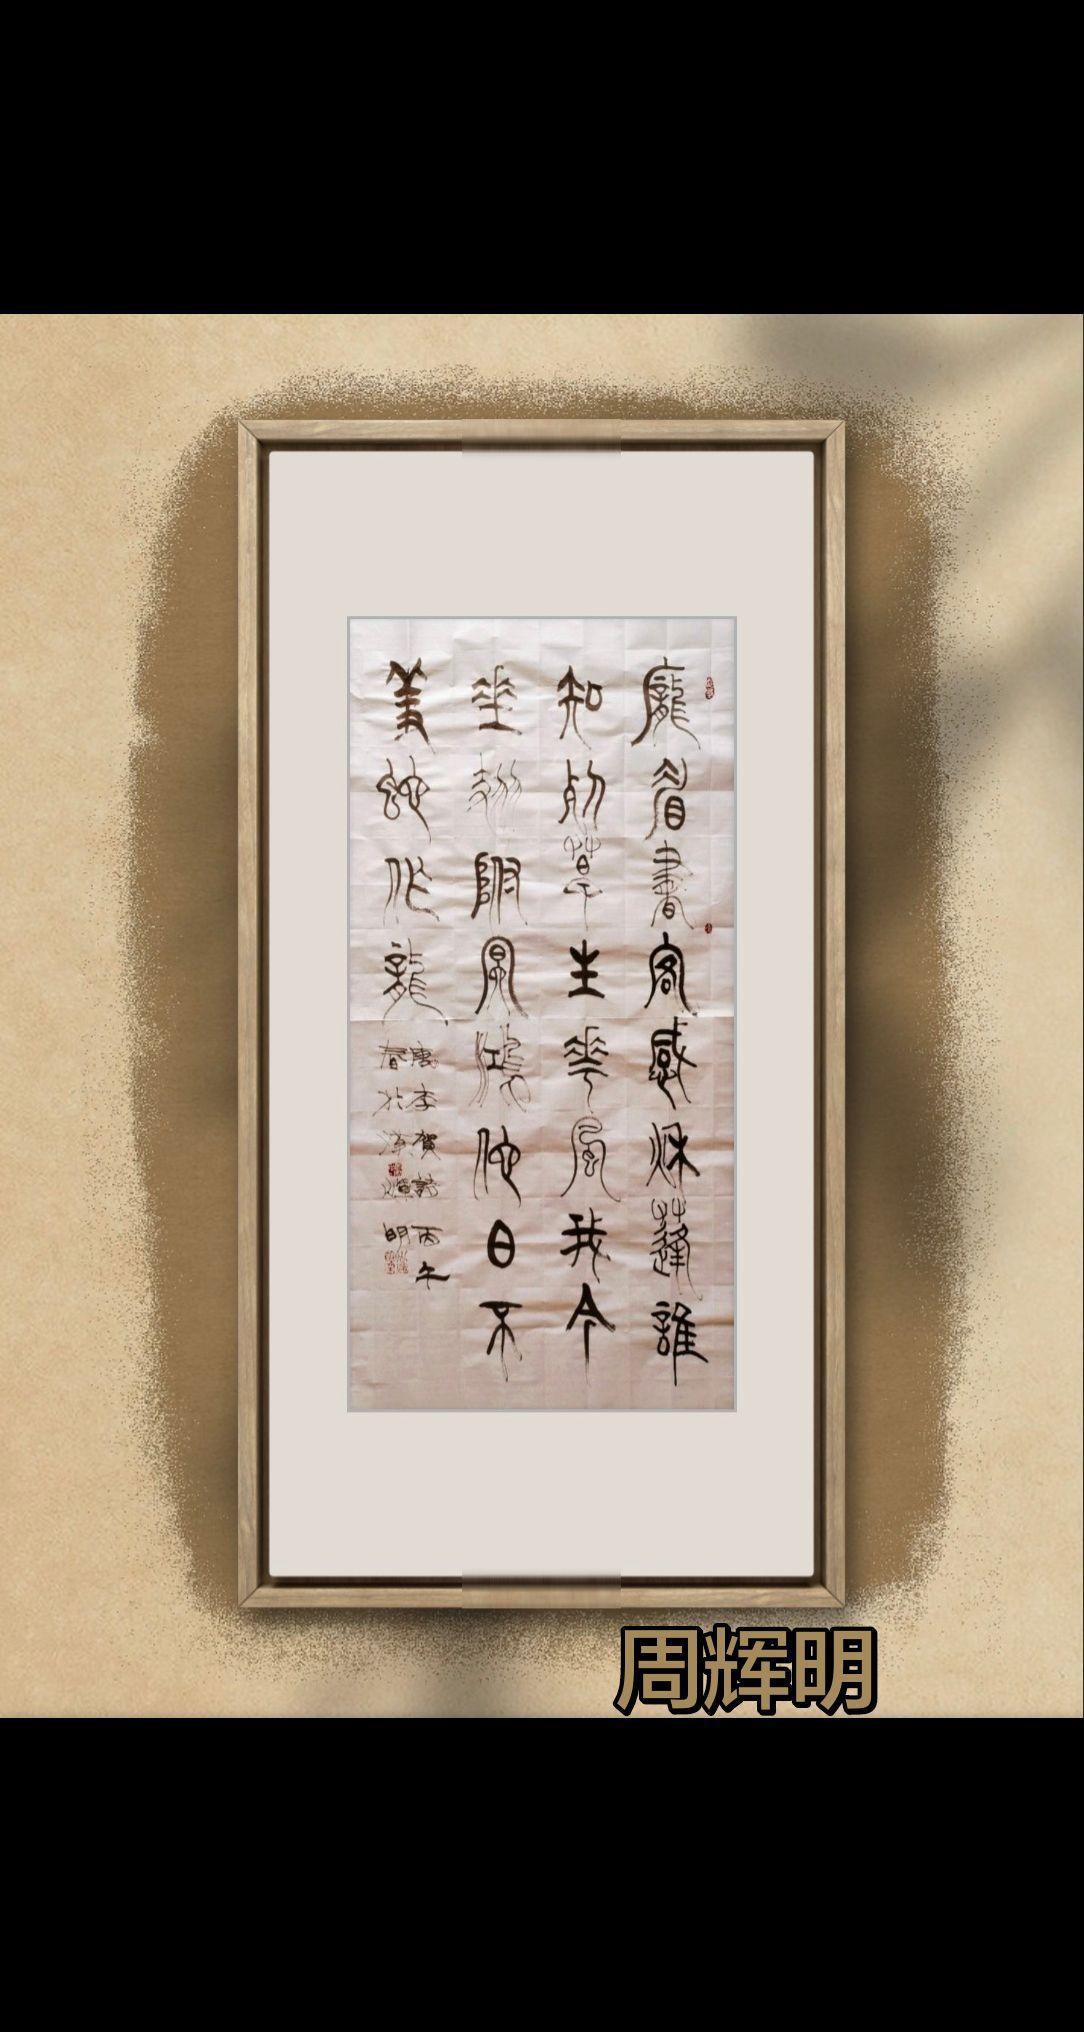 龐眉書客感秋蓬誰
知死草生華風我今
垂翅附冥鴻他日不
羞蛇作龍
唐李賀詩丙午
春於 輝明
周辉明